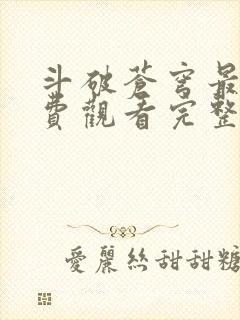 斗破蒼穹最
費觀看完整
愛麗絲甜甜糖